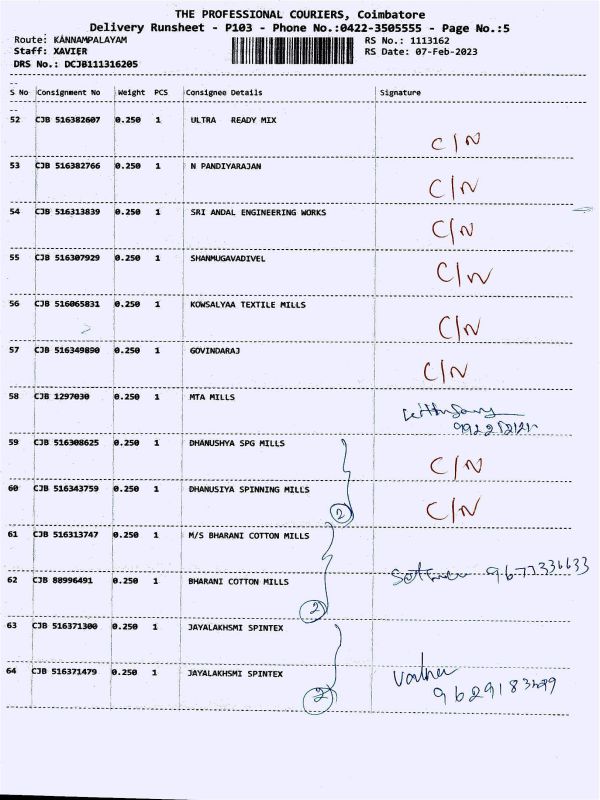 THE PROFESSIONAL COURIERS, Coimbatore
Delivery Runsheet - P103 - Phone No.:0422-3505555 - Page No.:5
Route: KANNAMPALAYAM RS No.: 1113162
Staff: XAVIER RS Date: 07-Feb-2023
DRS No.: DCJB111316205
S No Consignment No Weight PCS Consignee Details Signature
52 CJB 516382607 0.250 1 ULTRA READY MIX
C/N
53 CJB 516382766 0.250 1 N PANDIYARAJAN
C/N
54 CJB 516313839 0.250 1 SRI ANDAL ENGINEERING WORKS
C/N
55 CJB 516307929 0.250 1 SHANMUGAVADIVEL
C/N
56 CJB 516065831 0.250 1 KOWSALYAA TEXTILE MILLS
C/N
57 CJB 516349890 0.250 1 GOVINDARAJ
C/N
58 CJB 1297030 0.250 1 MTA MILLS
59 CJB 516308625 0.250 1 DHANUSHYA SPG MILLS
C/N
60 CJB 516343759 0.250 1 DHANUSIYA SPINNING MILLS
2 C/N
61 CJB 516313747 0.250 1 M/S BHARANI COTTON MILLS
9677336633
62 CJB 88996491 0.250 1 BHARANI COTTON MILLS
2
63 CJB 516371300 0.250 1 JAYALAKHSMI SPINTEX
64 CJB 516371479 0.250 1 JAYALAKHSMI SPINTEX
2